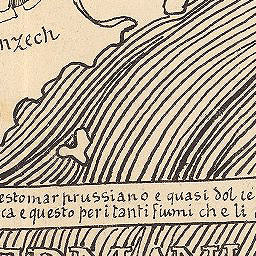 nzech
estomar prussiano e quasi dol ie
ca e questo per i tanti fiumi che li